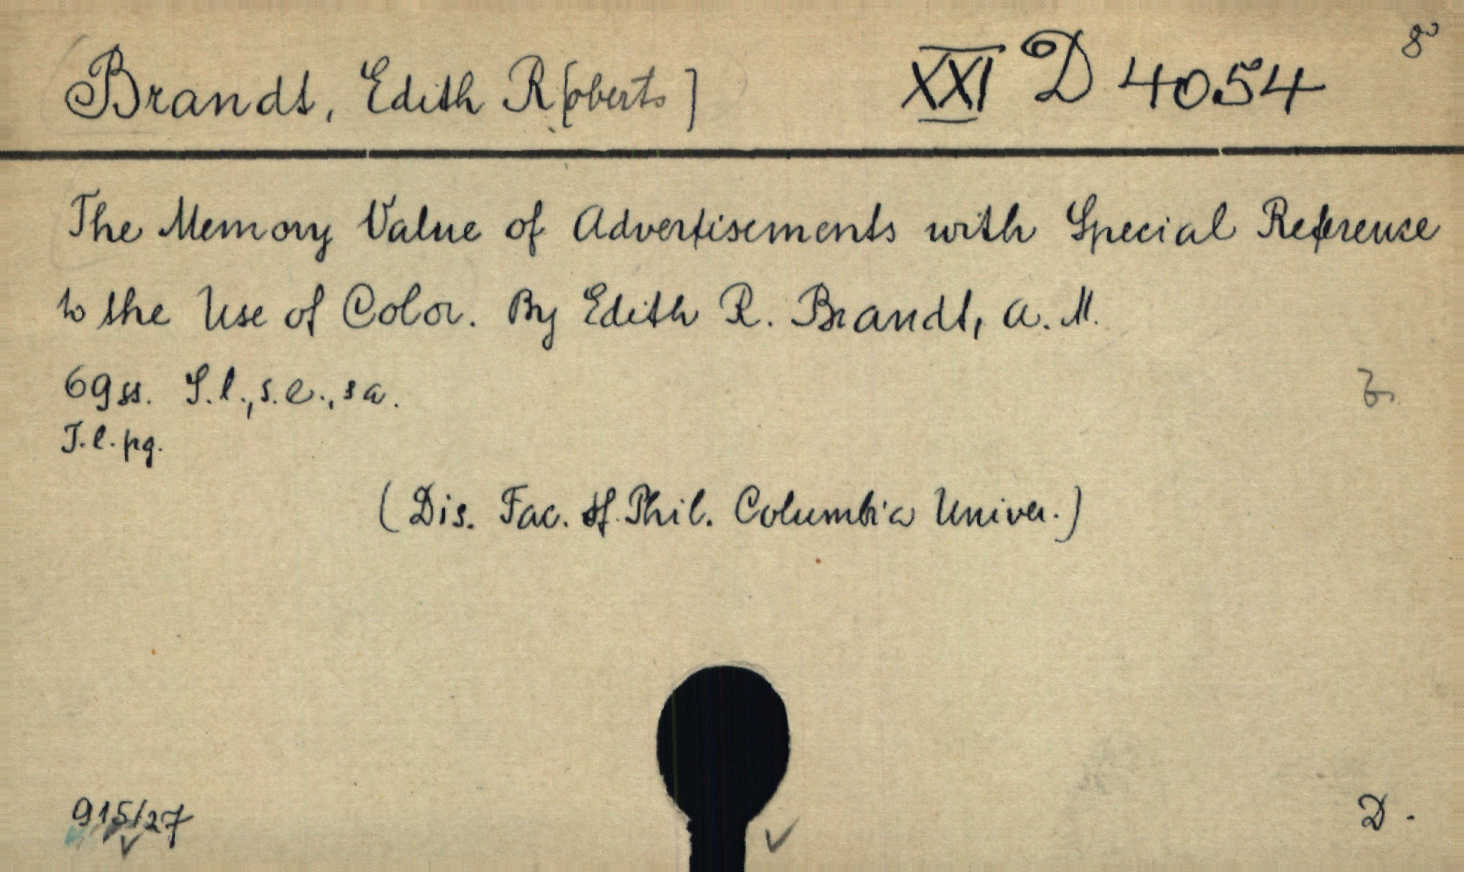 Brandt, Edith R[oberts] XXI D 4054 8°
The Memory Value of Advertisements with Special Reference
to the Use of Color. By Edith R. Brandt, A. M.
69 ss. S.l., s.e., s a.
T.l.pg.
(Dis. Fac. of Phil. Columbia Univer.)
915/27 D.